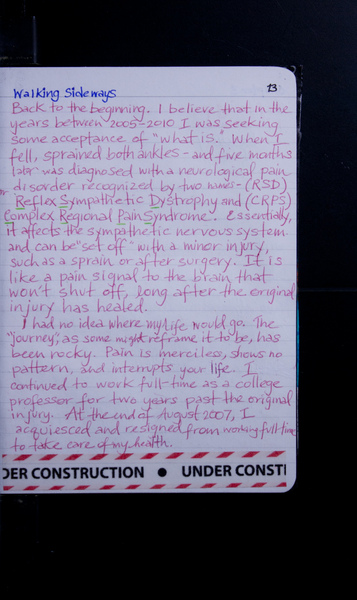 Walking Sideways
13
Back to the beginning. I believe that in the
years between 2005-2010 I was seeking
some acceptance of "what is." When I
fell, sprained both ankles - and five months
later was diagnosed with a neurological pain
disorder recognized by two names - (RSD)
Reflex Sympathetic Dystrophy and (CRPS)
Complex Regional Pain Syndrome. Essentially,
it affects the sympathetic nervous system
and can be "set off" with a minor injury,
such as a sprain or after surgery. It is
like a pain signal to the brain that
won't shut off, long after the original
injury has healed.
I had no idea where my life would go. The
"journey", as some might reframe it to be, has
been rocky. Pain is merciless, shows no
pattern, and interrupts your life. I
continued to work full-time as a college
professor for two years past the original
injury. At the end of August 2007, I
acquiesced and resigned from working full time
to take care of my health.
DER CONSTRUCTION ● UNDER CONSTI